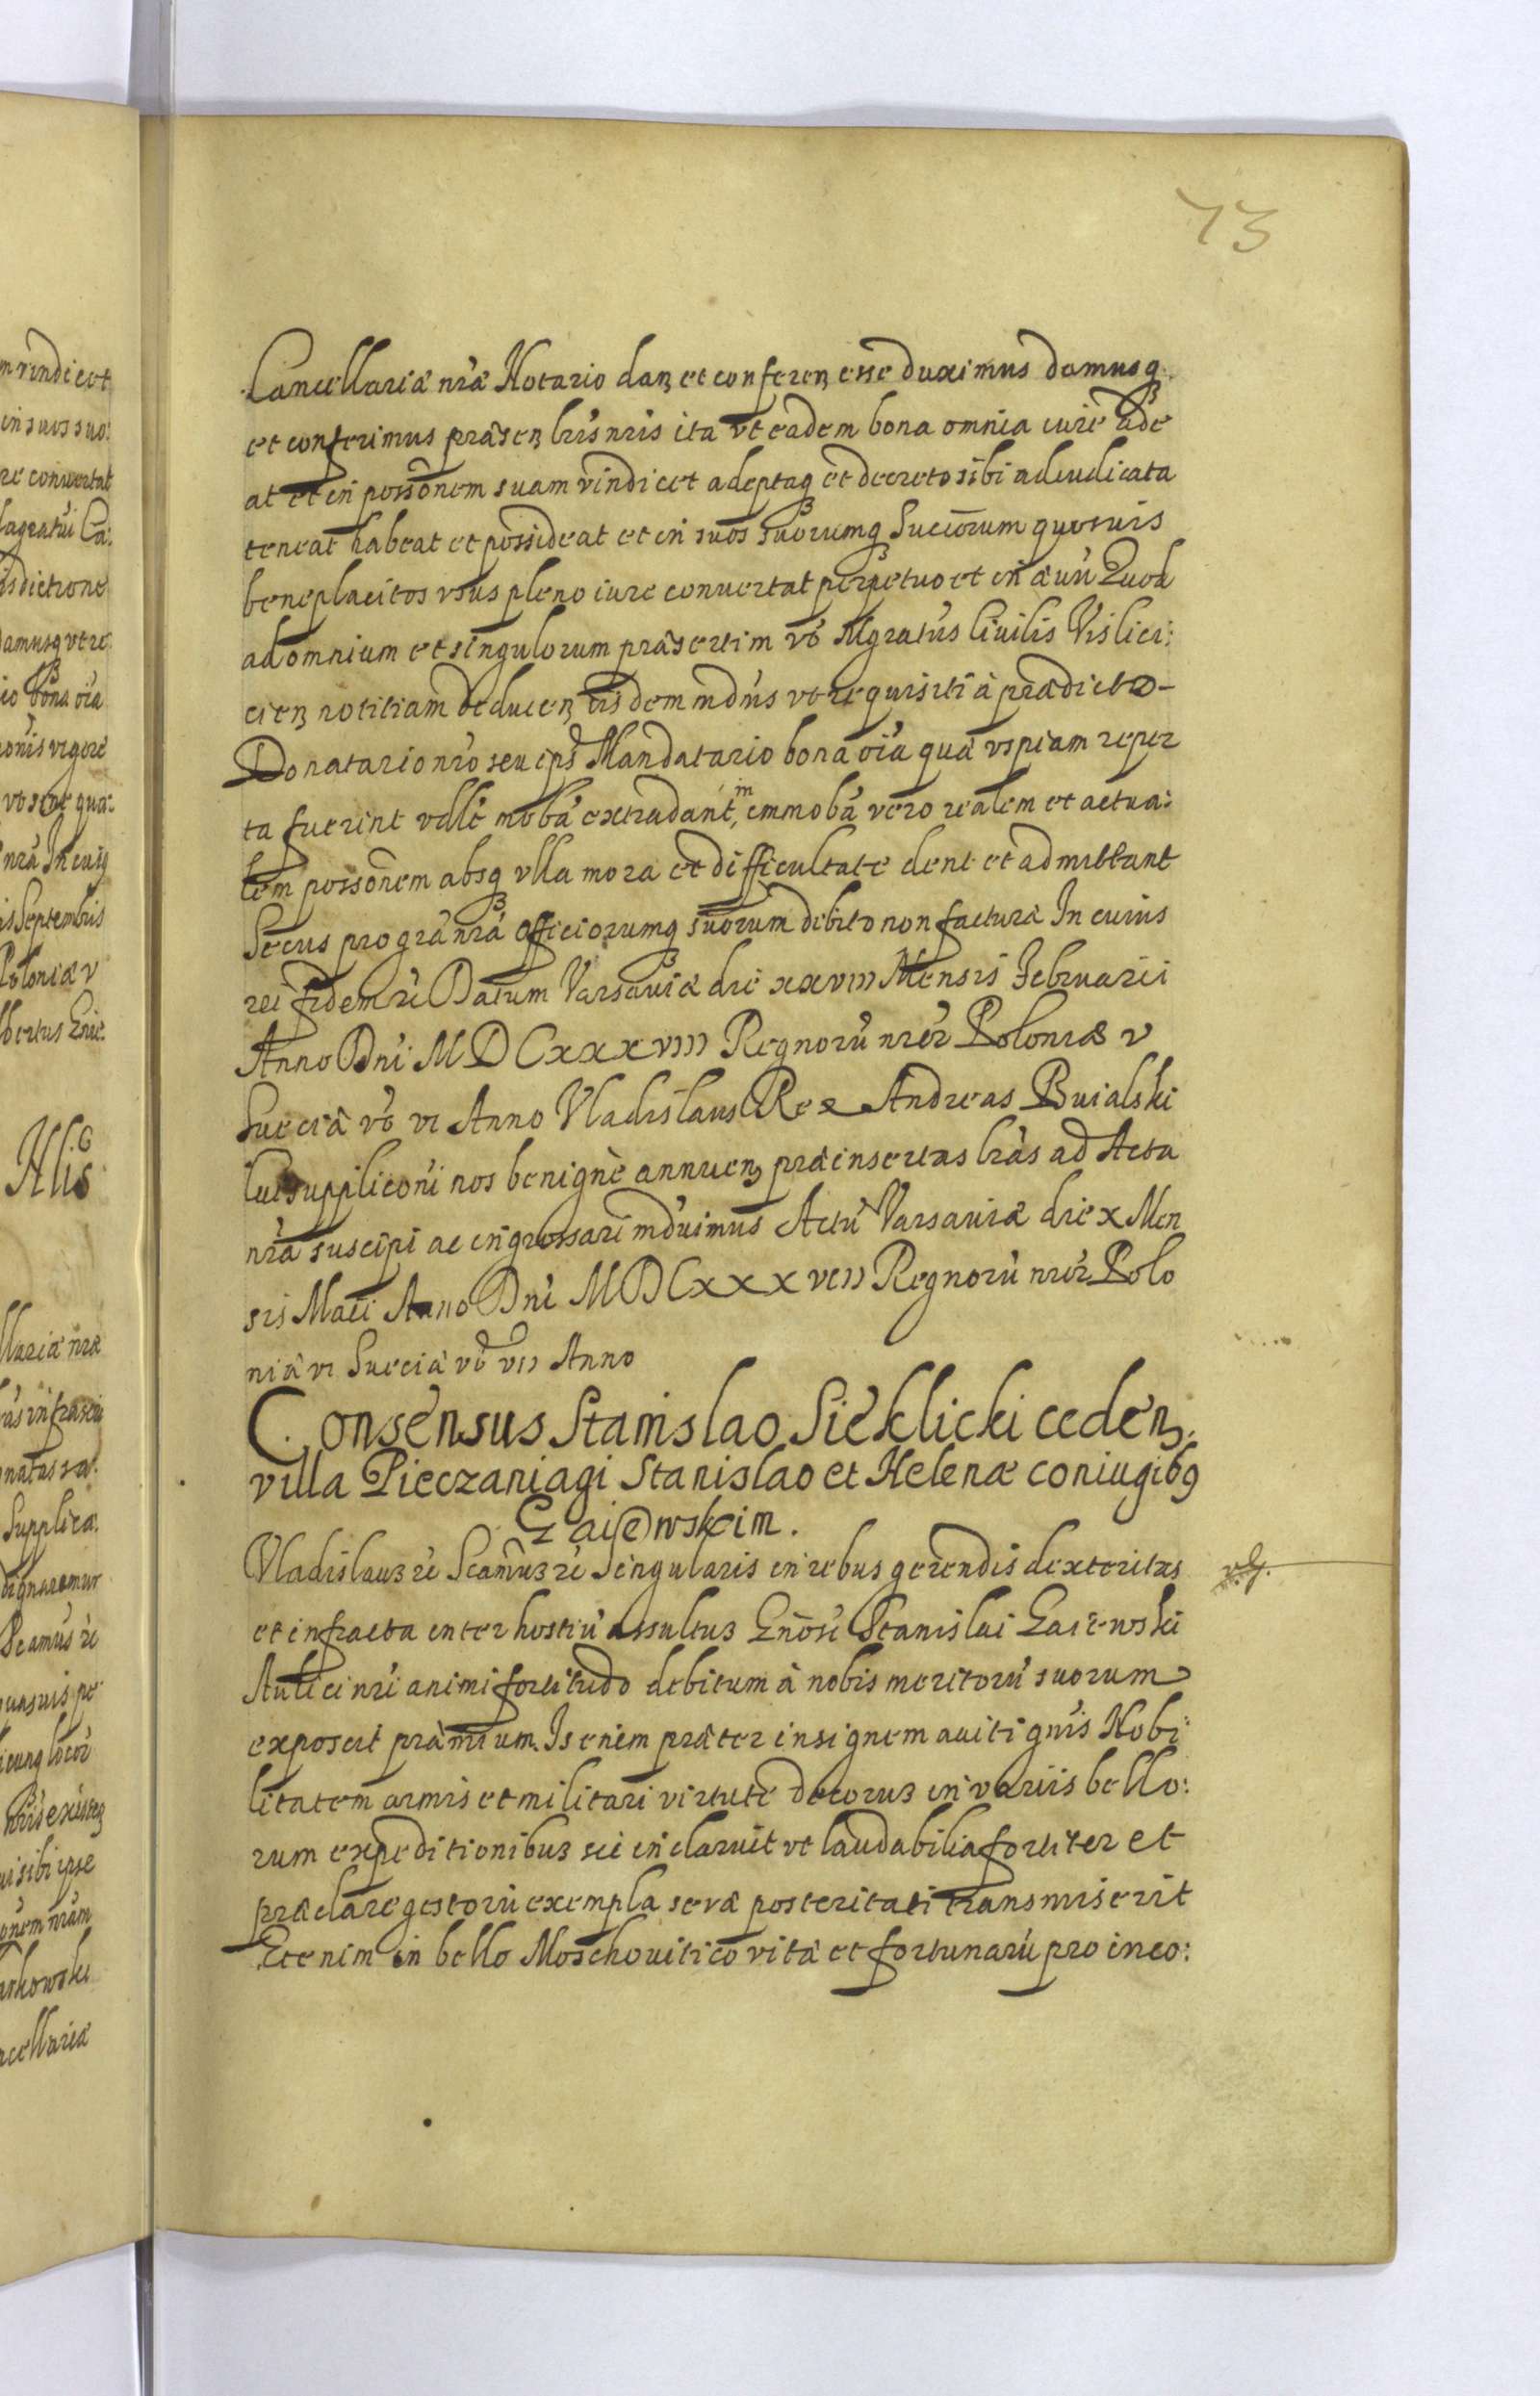 73
Cancellariæ nræ Notario danʒ et conferenʒ esse duximus damusqʒ
et conferimus præsenʒ lris nris ita vt eadem bona omnia iure ade
at et in possonem suam vindicet adeptaqʒ et decreto sibi adiudicata
teneat habeat et possideat et in suos suorumqʒ Succorum quosuis
beneplacitos vsus pleno iure conuertat perpetuo et in æuu Quod
ad omnium et singulorum præsertim vo Mgratus Ciuilis Vislici:
cienʒ notitiam deducenʒ iisdem mdus vt requisiti à prædicto
Donatario nro seu ips Mandatario bona oia quæ vspiam reper
ta fuerint vdlt moba extradant, imoba vero realem et actua:
lem possonem absqʒ vlla mora et difficultate dent et admittant
Secus pro gra nra officiorumqʒ suorum debito non facturi In cuius
rei fidem ze Datum Varsauiæ die xxviii Mensis Februarii
Anno Dni MDCxxxviii Regnoru nror Poloniæ v
Sueciæ vo vi Anno Vladislaus Rex Andreas Buialski
Cui suppliconi nos benignè annuenʒ præinsertas lras ad Acta
nra suscipi ac ingrossari mduimus Actu Varsauiæ die x Men
sis Maii Anno Dni MDCxxxviii Regnoru nror Polo
niæ vi Sueciæ vo vii Anno
Consensus Stanislao Sieklicki cedenʒ.
villa Pieczaniagi Stanislao et Helenæ coniugibꝰ
Gaiewskim.
Vladislausʒ ze Scamusʒ ze Singularis in rebus gerendis dexteritas
et infracta inter hostiu assultusʒ Gnosi Stanislai Gaiewski
Aulici nri animi fortitudo debitum à nobis meritoru suorum
exposcit præmium. Is enim præter insignem auiti gnis Nobi:
litatem armis et militari virtute decorusʒ in variis bello:
rum expeditionibusʒ sic inclaruit vt laudabilia fortiter et
præclare gestoru exempla seræ posteritati transmiserit
Etenim in bello Moschouitico vitæ et fortunaru pro inco: